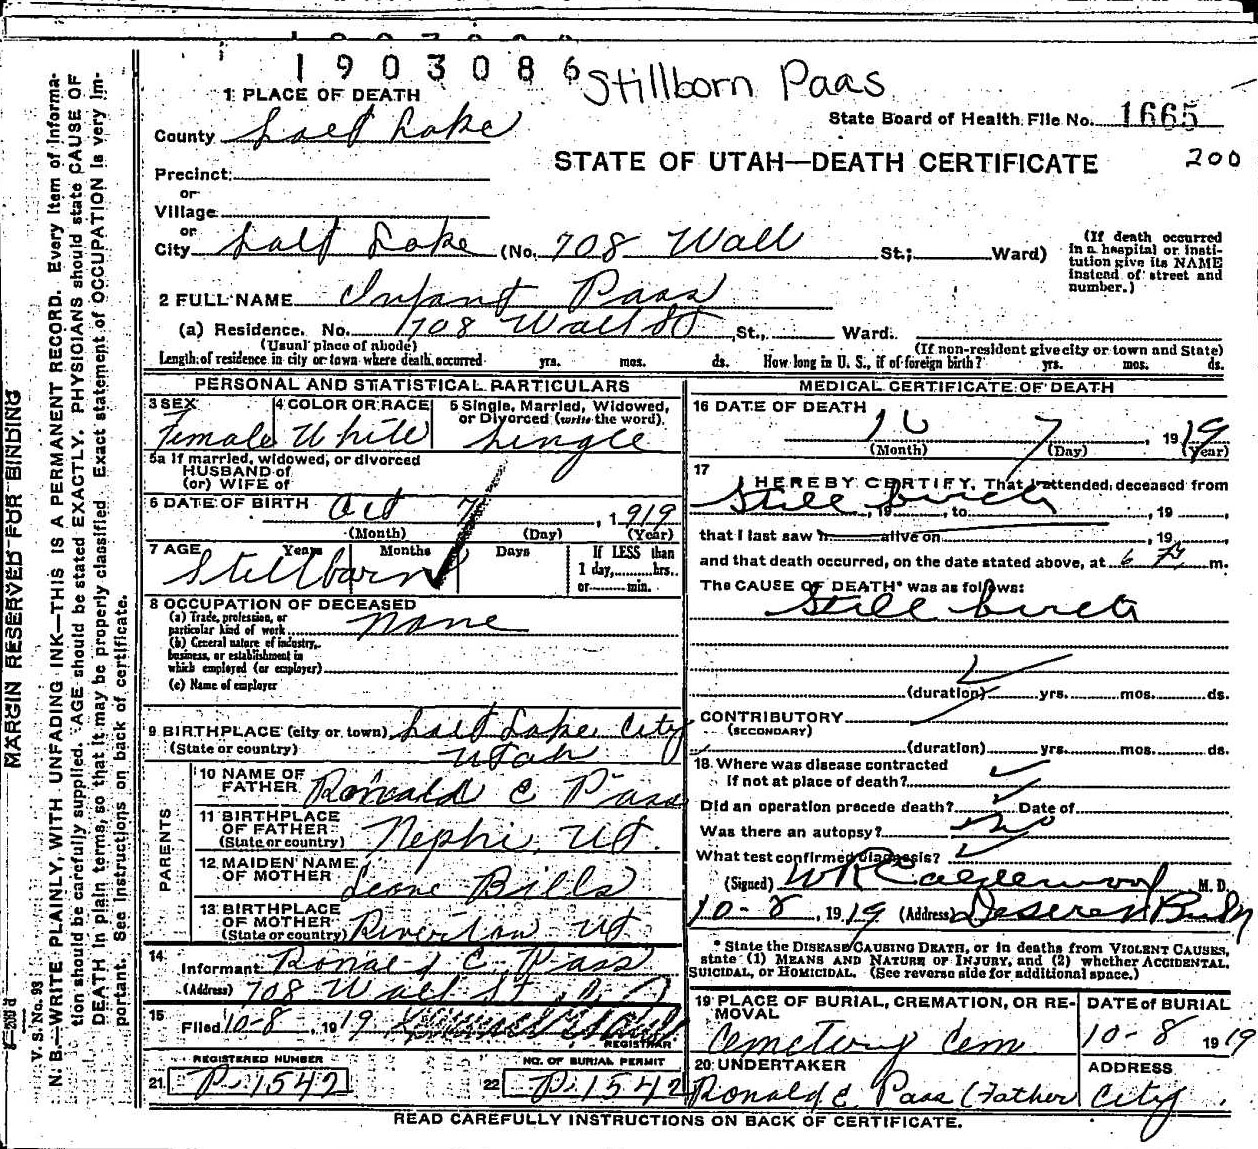 1903086 Stillborn Paas
1 PLACE OF DEATH
State Board of Health File No. 1665
County Salt Lake
STATE OF UTAH—DEATH CERTIFICATE 200
Precinct
or
Village
or
City Salt Lake (No. 708 Wall St; Ward)
(If death occurred in a hospital or institution give its NAME instead of street and number.)
2 FULL NAME Infant Paas
(a) Residence. No. 708 Wall St St., Ward.
(Usual place of abode) (If non-resident give city or town and State)
Length of residence in city or town where death occurred yrs. mos. ds. How long in U. S., if of foreign birth? yrs. mos. ds.
PERSONAL AND STATISTICAL PARTICULARS
3 SEX Female
4 COLOR OR RACE White
5 Single, Married, Widowed, or Divorced (write the word) Single
5a If married, widowed, or divorced
HUSBAND of
(or) WIFE of
6 DATE OF BIRTH Oct 7, 1919
(Month) (Day) (Year)
7 AGE Years Months Days If LESS than 1 day, hrs. or min.
Stillborn
8 OCCUPATION OF DECEASED
(a) Trade, profession, or particular kind of work None
(b) General nature of industry, business, or establishment in which employed (or employer)
(c) Name of employer
9 BIRTHPLACE (city or town) Salt Lake City
(State or country) Utah
PARENTS
10 NAME OF FATHER Ronald C Paas
11 BIRTHPLACE OF FATHER (State or country) Nephi, Ut.
12 MAIDEN NAME OF MOTHER Leone Bills
13 BIRTHPLACE OF MOTHER (State or country) Riverton Ut
14 Informant Ronald C. Paas
(Address) 708 Wall St
15 Filed 10-8, 1919
REGISTRAR
REGISTERED NUMBER NO. OF BURIAL PERMIT
21 P-1542 22 P-1542
MEDICAL CERTIFICATE OF DEATH
16 DATE OF DEATH
10 7, 1919
(Month) (Day) (Year)
17 I HEREBY CERTIFY, That I attended deceased from
Still birth, 19, to, 19,
that I last saw h alive on, 19,
and that death occurred, on the date stated above, at 6 m.
The CAUSE OF DEATH* was as follows:
Still birth
(duration) yrs. mos. ds.
CONTRIBUTORY
(SECONDARY)
(duration) yrs. mos. ds.
18. Where was disease contracted
If not at place of death?
Did an operation precede death? Date of
Was there an autopsy? no
What test confirmed diagnosis?
(Signed) W R Calderwood M. D.
10-8, 1919 (Address) Deseret B
* State the DISEASE CAUSING DEATH, or in deaths from VIOLENT CAUSES, state (1) MEANS AND NATURE OF INJURY, and (2) whether ACCIDENTAL, SUICIDAL, or HOMICIDAL. (See reverse side for additional space.)
19 PLACE OF BURIAL, CREMATION, OR REMOVAL Cemetery Cem
DATE OF BURIAL 10-8 1919
20 UNDERTAKER Ronald C Paas (Father)
ADDRESS City
READ CAREFULLY INSTRUCTIONS ON BACK OF CERTIFICATE.
MARGIN RESERVED FOR BINDING
V. S. No. 93
N. B.—WRITE PLAINLY, WITH UNFADING INK—THIS IS A PERMANENT RECORD. Every item of informa-
tion should be carefully supplied. AGE should be stated EXACTLY. PHYSICIANS should state CAUSE OF
DEATH in plain terms, so that it may be properly classified. Exact statement of OCCUPATION is very im-
portant. See instructions on back of certificate.